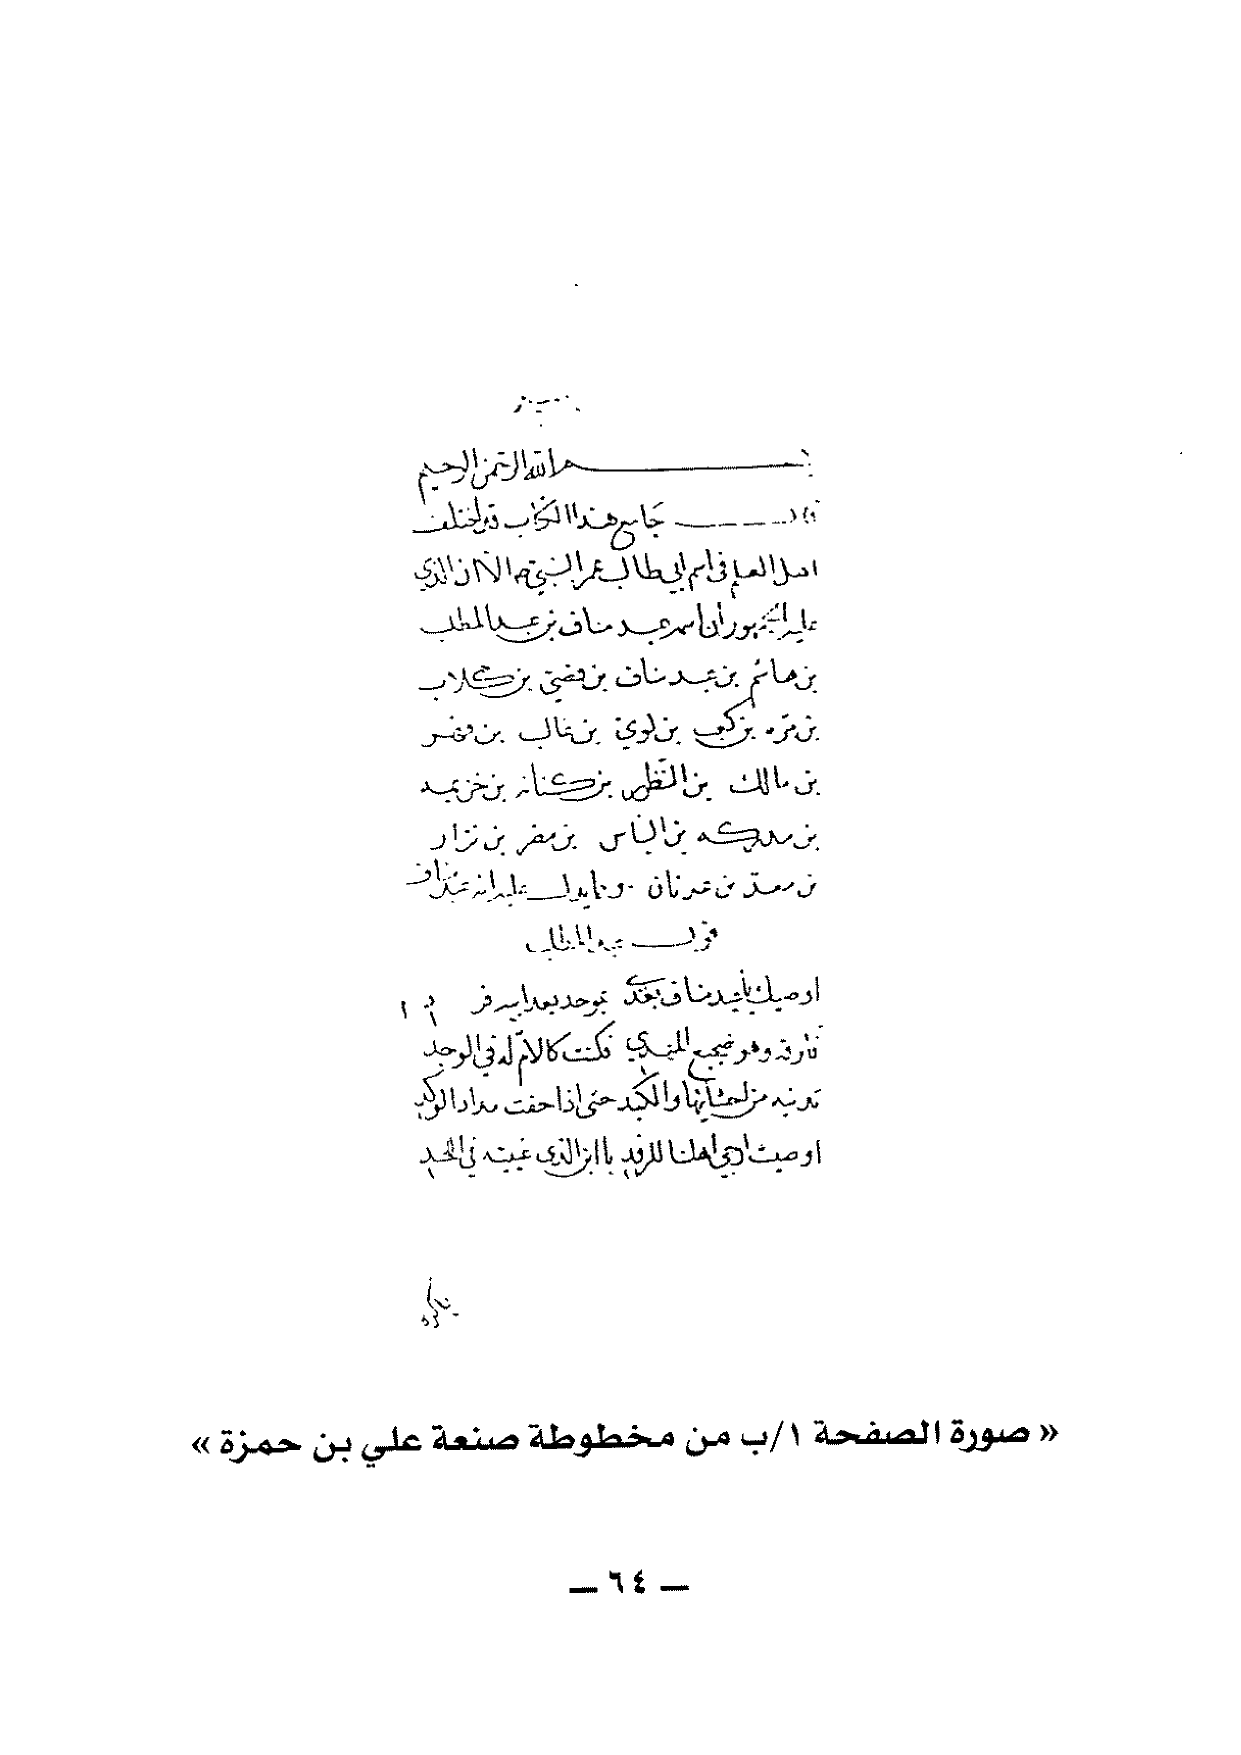 بسم الله الرحمن الرحيم
قال جامع هذا الكتاب قد اختلف
اهل العلم في اسم ابي طالب عم النبي الا ان الذي
عليه الجمهور ان اسمه عبد مناف بن عبد المطلب
بن هاشم بن عبد مناف بن قصي بن كلاب
بن مره بن كعب بن لوي بن غالب بن فهر
بن مالك بن النظر بن كنانه بن خزيمه
بن مدركه بن الياس بن مضر بن نزار
بن معد بن عدنان ومما يدل على انه عبد مناف
قول عبد المطلب
اوصيك يا عبد مناف بعدي بموحد بعد ابيه فرد
فارقه وهو ضجيع المهد فكنت كالام له في الوجد
تدنيه من احشائها والكبد حتى اذا خفت مداد الوعد
اوصيت ارجى اهلنا للرفد يا ابن الذي غيبته في اللحد
« صورة الصفحة ١/ب من مخطوطة صنعة علي بن حمزة »
— ٦٤ —